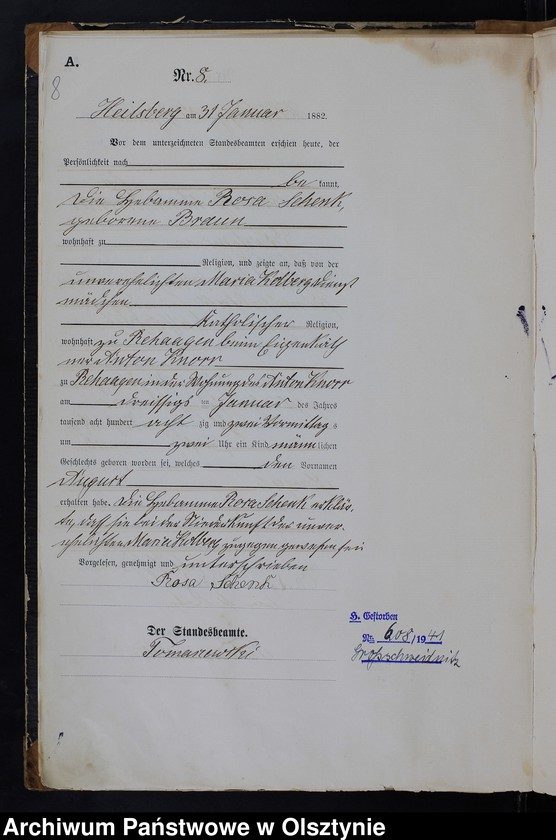 A.
8
Nr. 8.
Heilsberg am 31 Januar 1882.
Vor dem unterzeichneten Standesbeamten erschien heute, der
Persönlichkeit nach
be kannt,
die Hebamme Rosa Schenk,
geborene Braun
wohnhaft zu
Religion, und zeigte an, daß von der
unverehelichten Maria Kolberg, Dienst
mädchen
Katholischer Religion,
wohnhaft zu Rehaagen beim Eigenkäth
ner Anton Knorr
zu Rehaagen in der Wohnung des Anton Knorr
am dreissigs ten Januar des Jahres
tausend acht hundert acht zig und zwei Vormittag s
um zwei Uhr ein Kind männ lichen
Geschlechts geboren worden sei, welches den Vornamen
August
erhalten habe. Die Hebamme Rosa Schenk erklär,
te, daß sie bei der Niederkunft der unver,
ehelichten Maria Kolberg zugegen gewesen sei
Vorgelesen, genehmigt und unterschrieben
Rosa Schenk
Der Standesbeamte.
Tomanewski
H. Gestorben
Nr. 608/1941
Großschweidnitz
Archiwum Państwowe w Olsztynie